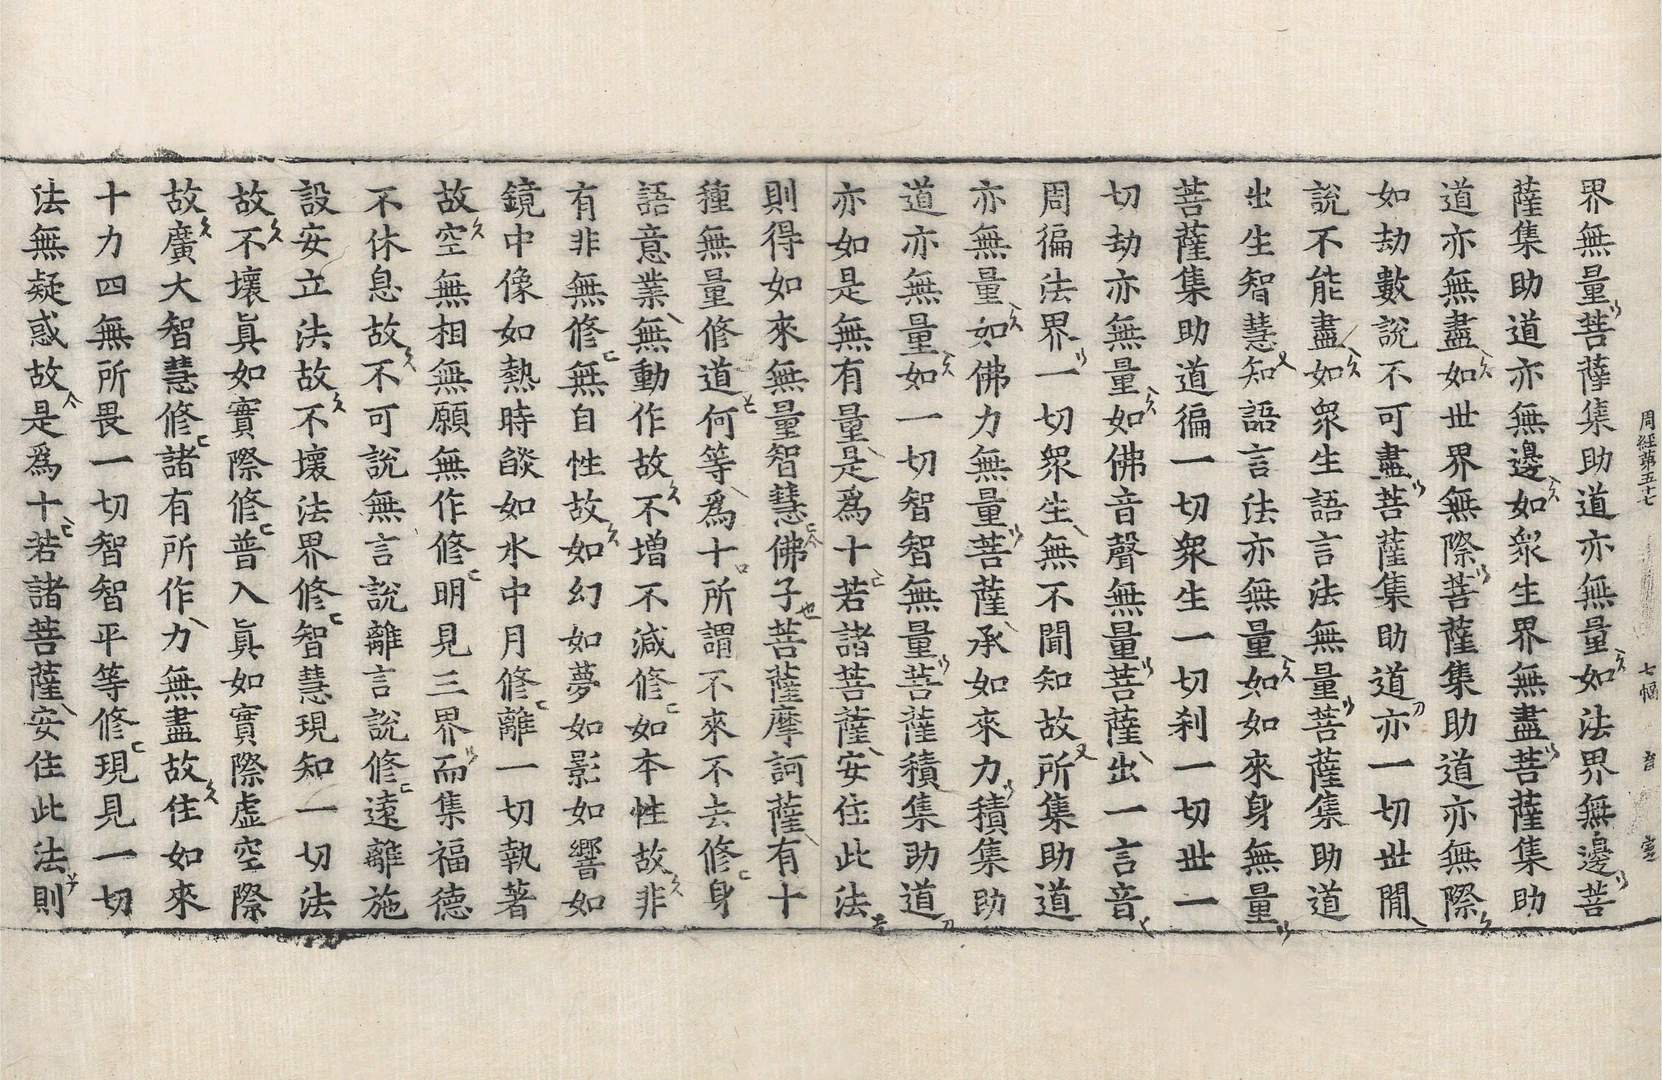 周経第五十七 七幅 音 壹
界無量菩薩集助道亦無量如法界無邊菩
薩集助道亦無邊如衆生界無盡菩薩集助
道亦無盡如世界無際菩薩集助道亦無際
如劫數說不可盡菩薩集助道亦一切世間
說不能盡如衆生語言法無量菩薩集助道
出生智慧知語言法亦無量如如來身無量
菩薩集助道徧一切衆生一切刹一切世一
切劫亦無量如佛音聲無量菩薩出一言音
周徧法界一切衆生無不聞知故所集助道
亦無量如佛力無量菩薩承如來力積集助
道亦無量如一切智智無量菩薩積集助道
亦如是無有量是爲十若諸菩薩安住此法
則得如來無量智慧佛子菩薩摩訶薩有十
種無量修道何等爲十所謂不來不去修身
語意業無動作故不增不減修如本性故非
有非無修無自性故如幻如夢如影如響如
鏡中像如熱時燄如水中月修離一切執著
故空無相無願無作修明見三界而集福德
不休息故不可說無言說離言說修遠離施
設安立法故不壞法界修智慧現知一切法
故不壞眞如實際修普入眞如實際虛空際
故廣大智慧修諸有所作力無盡故住如來
十力四無所畏一切智智平等修現見一切
法無疑惑故是爲十若諸菩薩安住此法則